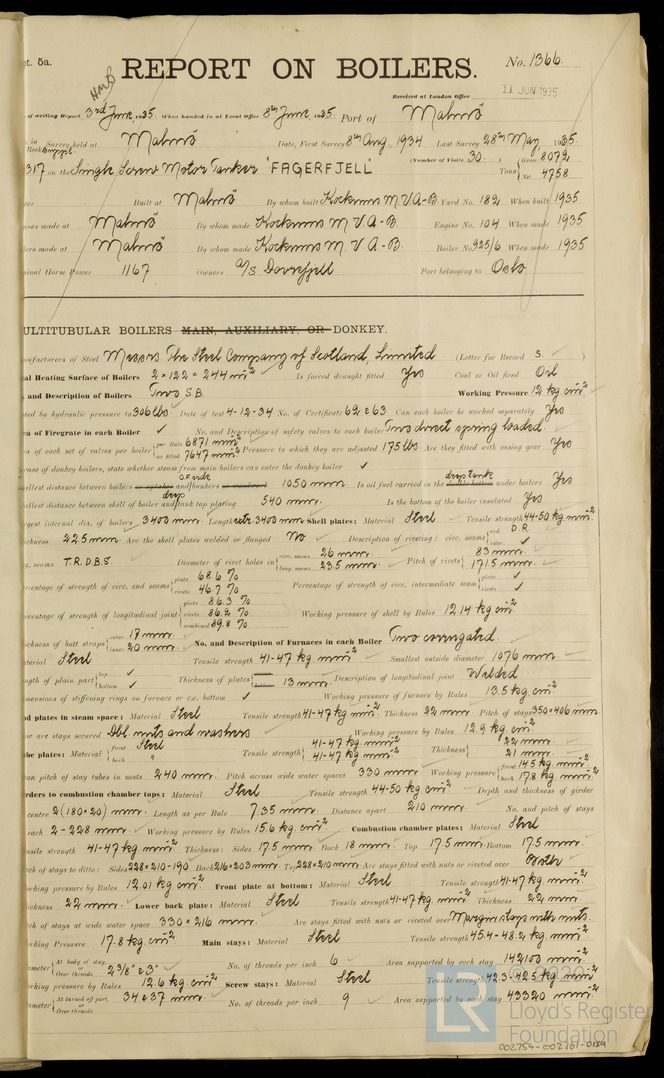 pt. 5a.
REPORT ON BOILERS.
No. 1366.
Received at London Office
11 JUN 1935
of writing Report 3rd June, 1935. When handed in at Local Office 8th June, 1935. Port of Malmö
in Survey held at Malmö Date, First Survey 8th Aug., 1934 Last Survey 28th May, 1935.
Book
317 on the Single Screw Motor Tanker "FAGERFJELL" (Number of Visits 30 ) Tons Gross 8072 Net 4758
Built at Malmö By whom built Kockums M.V.A-B. Yard No. 182 When built 1935
ines made at Malmö By whom made Kockums M.V.A-B. Engine No. 104 When made 1935
lers made at Malmö By whom made Kockums M.V.A-B. Boiler No. 925/6 When made 1935
inal Horse Power 1167 Owners A/S Dovrefjell Port belonging to Oslo
ULTITUBULAR BOILERS MAIN, AUXILIARY, OR DONKEY.
nufacturers of Steel Messrs The Steel Company of Scotland, Limited (Letter for Record S. )
al Heating Surface of Boilers 2 × 122 = 244 m² Is forced draught fitted Yes Coal or Oil fired Oil
and Description of Boilers Two S.B. Working Pressure 12 kg cm²
ted by hydraulic pressure to 306 lbs Date of test 4-12-34 No. of Certificate 62 & 63 Can each boiler be worked separately Yes
a of Firegrate in each Boiler ✓ No. and Description of safety valves to each boiler Two direct spring loaded
a of each set of valves per boiler per Rule 6871 mm² as fitted 7647 mm² Pressure to which they are adjusted 175 lbs Are they fitted with easing gear Yes
case of donkey boilers, state whether steam from main boilers can enter the donkey boiler ✓
allest distance between boilers or uptakes and bunkers or woodwork 1050 mm. Is oil fuel carried in the double bottom deep tank under boilers Yes
allest distance between shell of boiler and deep tank top plating 540 mm. Is the bottom of the boiler insulated Yes
rgest internal dia. of boilers 3400 mm. Length extr. 3400 mm Shell plates: Material Steel Tensile strength 44-50 kg. mm²
ickness 22.5 mm. Are the shell plates welded or flanged No Description of riveting: circ. seams end D.R. inter. ✓
g. seams T.R.D.B.S. Diameter of rivet holes in circ. seams 26 mm. long. seams 23.5 mm. Pitch of rivets 83 mm. 171.5 mm.
rcentage of strength of circ. end seams plate 68.6 % rivets 46.7 % Percentage of strength of circ. intermediate seam plate ✓ rivets ✓
rcentage of strength of longitudinal joint plate 86.3 % rivets 86.2 % combined 89.8 % Working pressure of shell by Rules 12.14 kg cm²
ickness of butt straps outer 17 mm. inner 20 mm. No. and Description of Furnaces in each Boiler Two corrugated
aterial Steel Tensile strength 41-47 kg mm² Smallest outside diameter 1076 mm
ngth of plain part top ✓ bottom ✓ Thickness of plates 13 mm. Description of longitudinal joint Welded
mensions of stiffening rings on furnace or c.c. bottom ✓ Working pressure of furnace by Rules 13.5 kg. cm²
d plates in steam space: Material Steel Tensile strength 41-47 kg mm² Thickness 22 mm Pitch of stays 350×406 mm
ow are stays secured Dbl. nuts and washers Working pressure by Rules 12.9 kg. cm²
be plates: Material front Steel back " Tensile strength 41-47 kg. mm² 41-47 kg. mm² Thickness 22 mm. 21 mm.
an pitch of stay tubes in nests 240 mm. Pitch across wide water spaces 330 mm. Working pressure front 14.5 kg. cm² back 17.8 kg. cm²
rders to combustion chamber tops: Material Steel Tensile strength 44-50 kg. cm² Depth and thickness of girder
centre 2(180×20) mm. Length as per Rule 7.35 mm. Distance apart 210 mm. No. and pitch of stays
each 2-228 mm. Working pressure by Rules 15.6 kg. cm² Combustion chamber plates: Material Steel
nsile strength 41-47 kg mm² Thickness: Sides 17.5 mm. Back 18 mm. Top 17.5 mm. Bottom 17.5 mm.
tch of stays to ditto: Sides 228×210-190 Back 216×203 mm. Top 228×210 mm. Are stays fitted with nuts or riveted over
orking pressure by Rules 12.01 kg cm² Front plate at bottom: Material Steel Tensile strength 41-47 kg mm²
ickness 22 mm. Lower back plate: Material Steel Tensile strength 41-47 kg mm² Thickness 22 mm.
tch of stays at wide water space 330×216 mm. Are stays fitted with nuts or riveted over Margin stays with nuts.
orking Pressure 17.8 kg cm² Main stays: Material Steel Tensile strength 45.4-48.2 kg. mm²
ameter At body of stay, or Over threads 2 3/8" & 3" No. of threads per inch 6 Area supported by each stay 142100 mm²
orking pressure by Rules 12.6 kg. cm² Screw stays: Material Steel Tensile strength 42.3-42.5 kg mm²
ameter At turned off part, or Over threads 34 & 37 mm. No. of threads per inch 9 Area supported by each stay 43320 mm²
© 2020
LR
Lloyd's Register
Foundation
002754-002761-0184